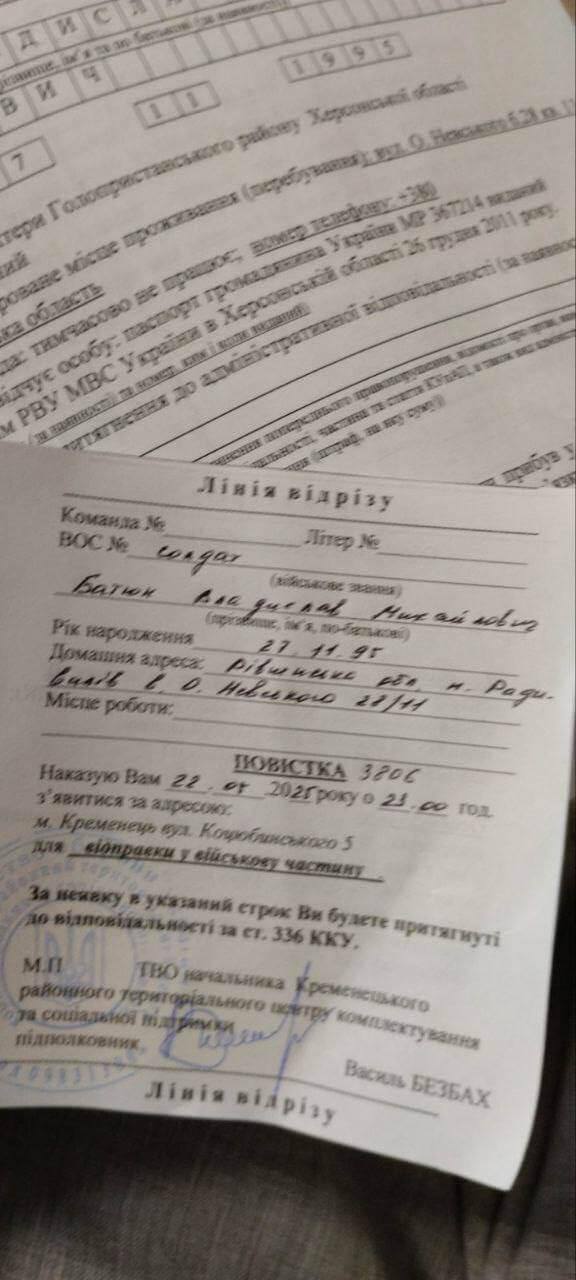 ДИСЛА
ВИЧ
1 1
1 9 9 5
7
Голопристанського району Херсонської області
місце проживання (перебування): вул. О. Невського б.28 кв. 11
номер телефону: +380
область
тимчасово не працює;
особу: паспорт громадянина України МР 367214 виданий
РВУ МВС України в Херсонській області 26 грудня 2011 року.
до адміністративної відповідальності (за наявності
прибув у
Лінія відрізу
Команда № Літер №
ВОС № солдат
(військове звання)
Батюн Владислав Михайлович
(прізвище, ім'я, по-батькові)
Рік народження 27.11.95
Домашня адреса: Рівненська обл. м. Ради-
вилів в. О. Невського 28/11
Місце роботи:
ПОВИСТКА 3806
Наказую Вам 22. 2025 року о 23.00 год.
з'явитися за адресою:
м. Кременець вул. Коцюбинського 5
для відправки у військову частину .
За неявку в указаний строк Ви будете притягнуті
до відповідальності за ст. 336 ККУ.
М.П ТВО начальника Кременецького
районного територіального центру комплектування
та соціальної підтримки
підполковник
Василь БЕЗБАХ
Лінія відрізу